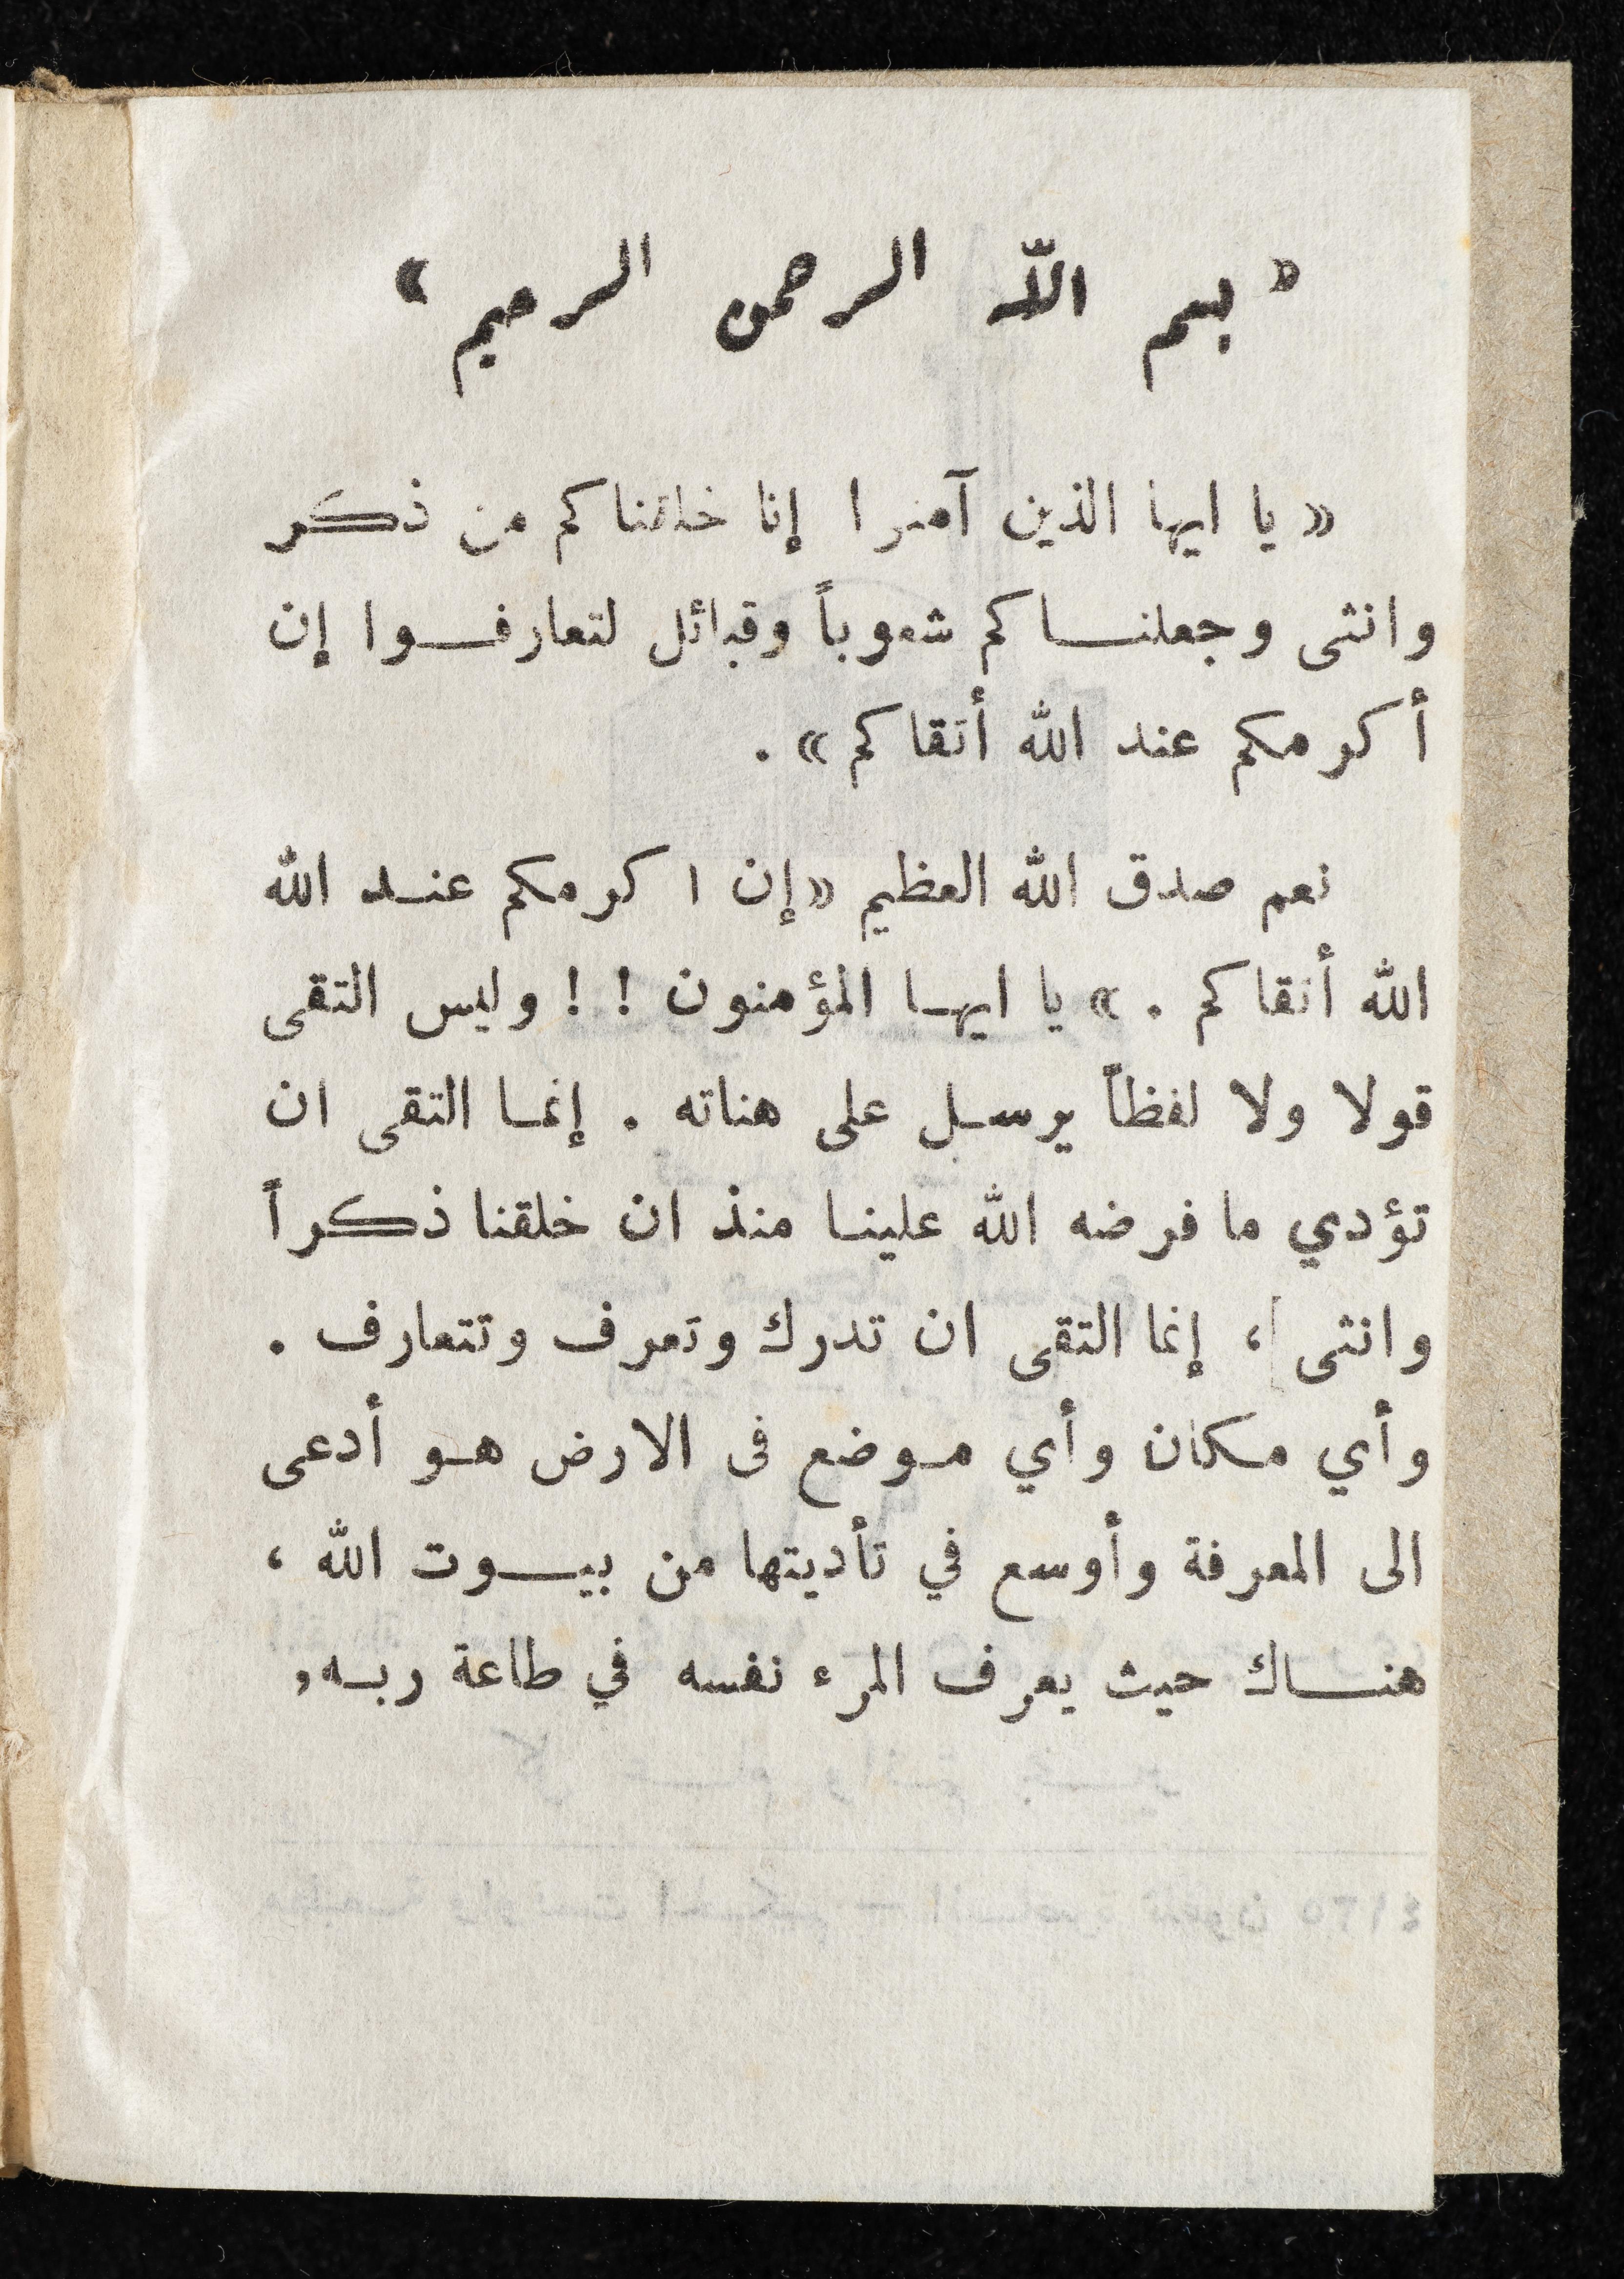 « بسم الله الرحمن الرحيم »
« يا ايها الذين آمنوا إنا خلقناكم من ذكر
وانثى وجعلنـاكم شعوباً وقبائل لتعارفـوا إن
أكرمكم عند الله أتقاكم » .
نعم صدق الله العظيم « إن اكرمكم عنـد الله
الله أتقاكم . » يا ايهـا المؤمنون ! ! وليس التقى
قولا ولا لفظاً يرسـل على هناته . إنمـا التقى ان
تؤدي ما فرضه الله علينـا منذ ان خلقنا ذكراً
وانثى ، إنما التقى ان تدرك وتعرف وتتعارف .
وأي مكان وأي مـوضع فى الارض هـو أدعى
الى المعرفة وأوسع في تأديتها من بيـوت الله ،
هنـاك حيث يعرف المرء نفسه في طاعة ربـه,